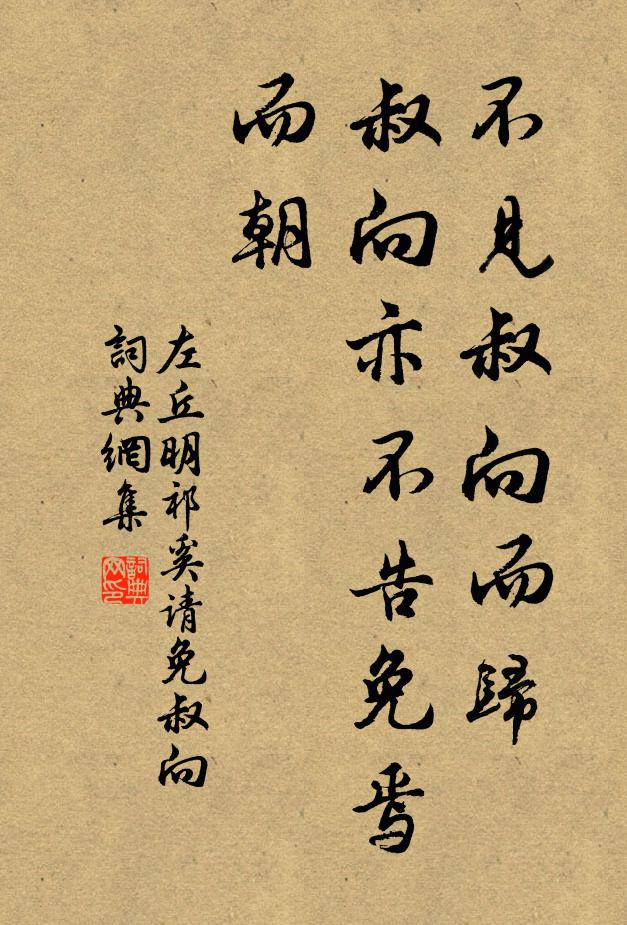 不見叔向而歸
叔向亦不告免焉
而朝
左丘明祁奚请免叔向
詞典網集
詞典
网印